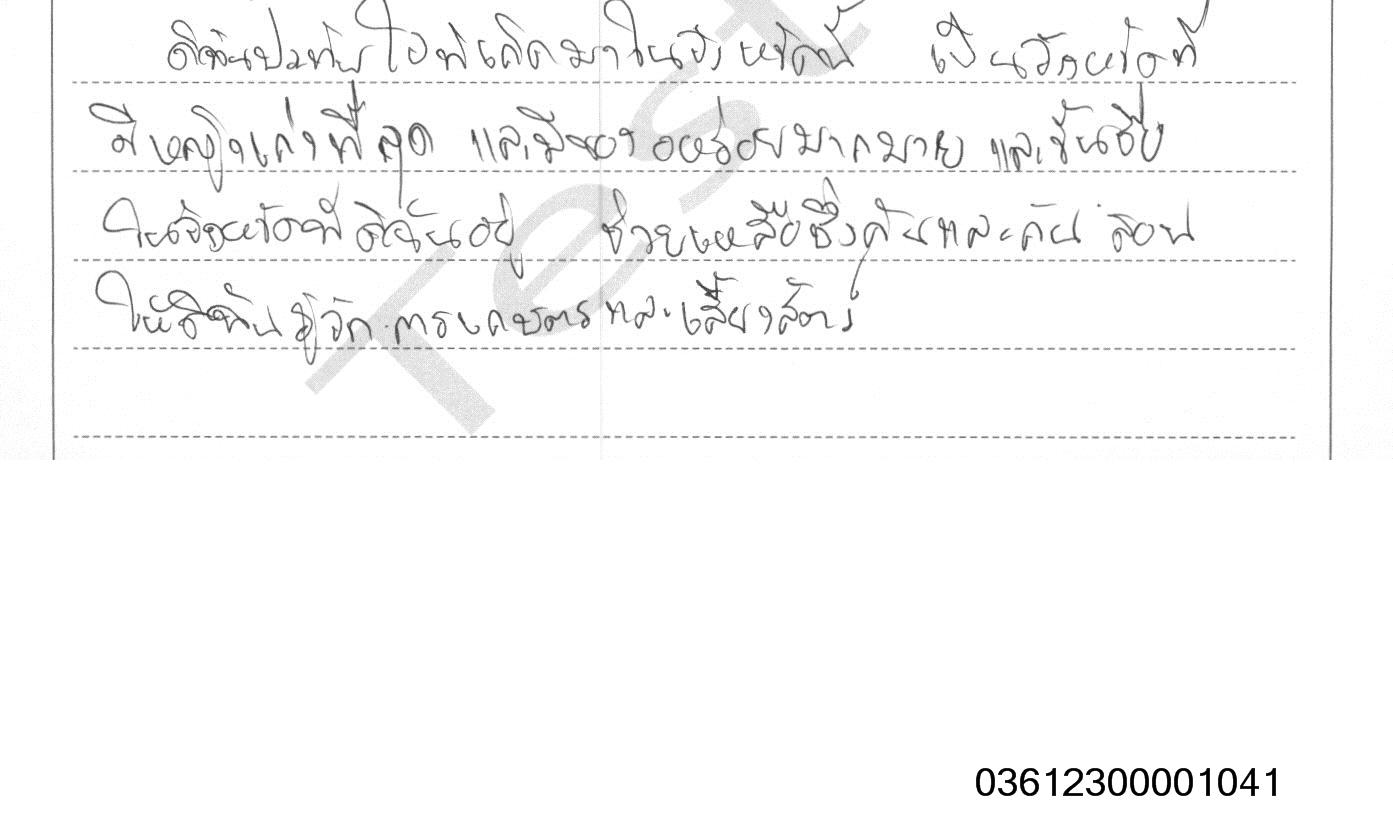 ดิฉันประทับใจที่เกิดมาในจังหวัดนี้ เป็นจังหวัดที่
มีหญิงเก่งที่สุด และมีของอร่อยมากมาย และชั้นชื่อ
ในจังหวัดที่ดิฉันอยู่ ช่วยเหลือซึ่งกันและกัน สอน
ให้ดิฉันรู้จักการเกษตรและเลี้ยงสัตว์
Test
03612300001041